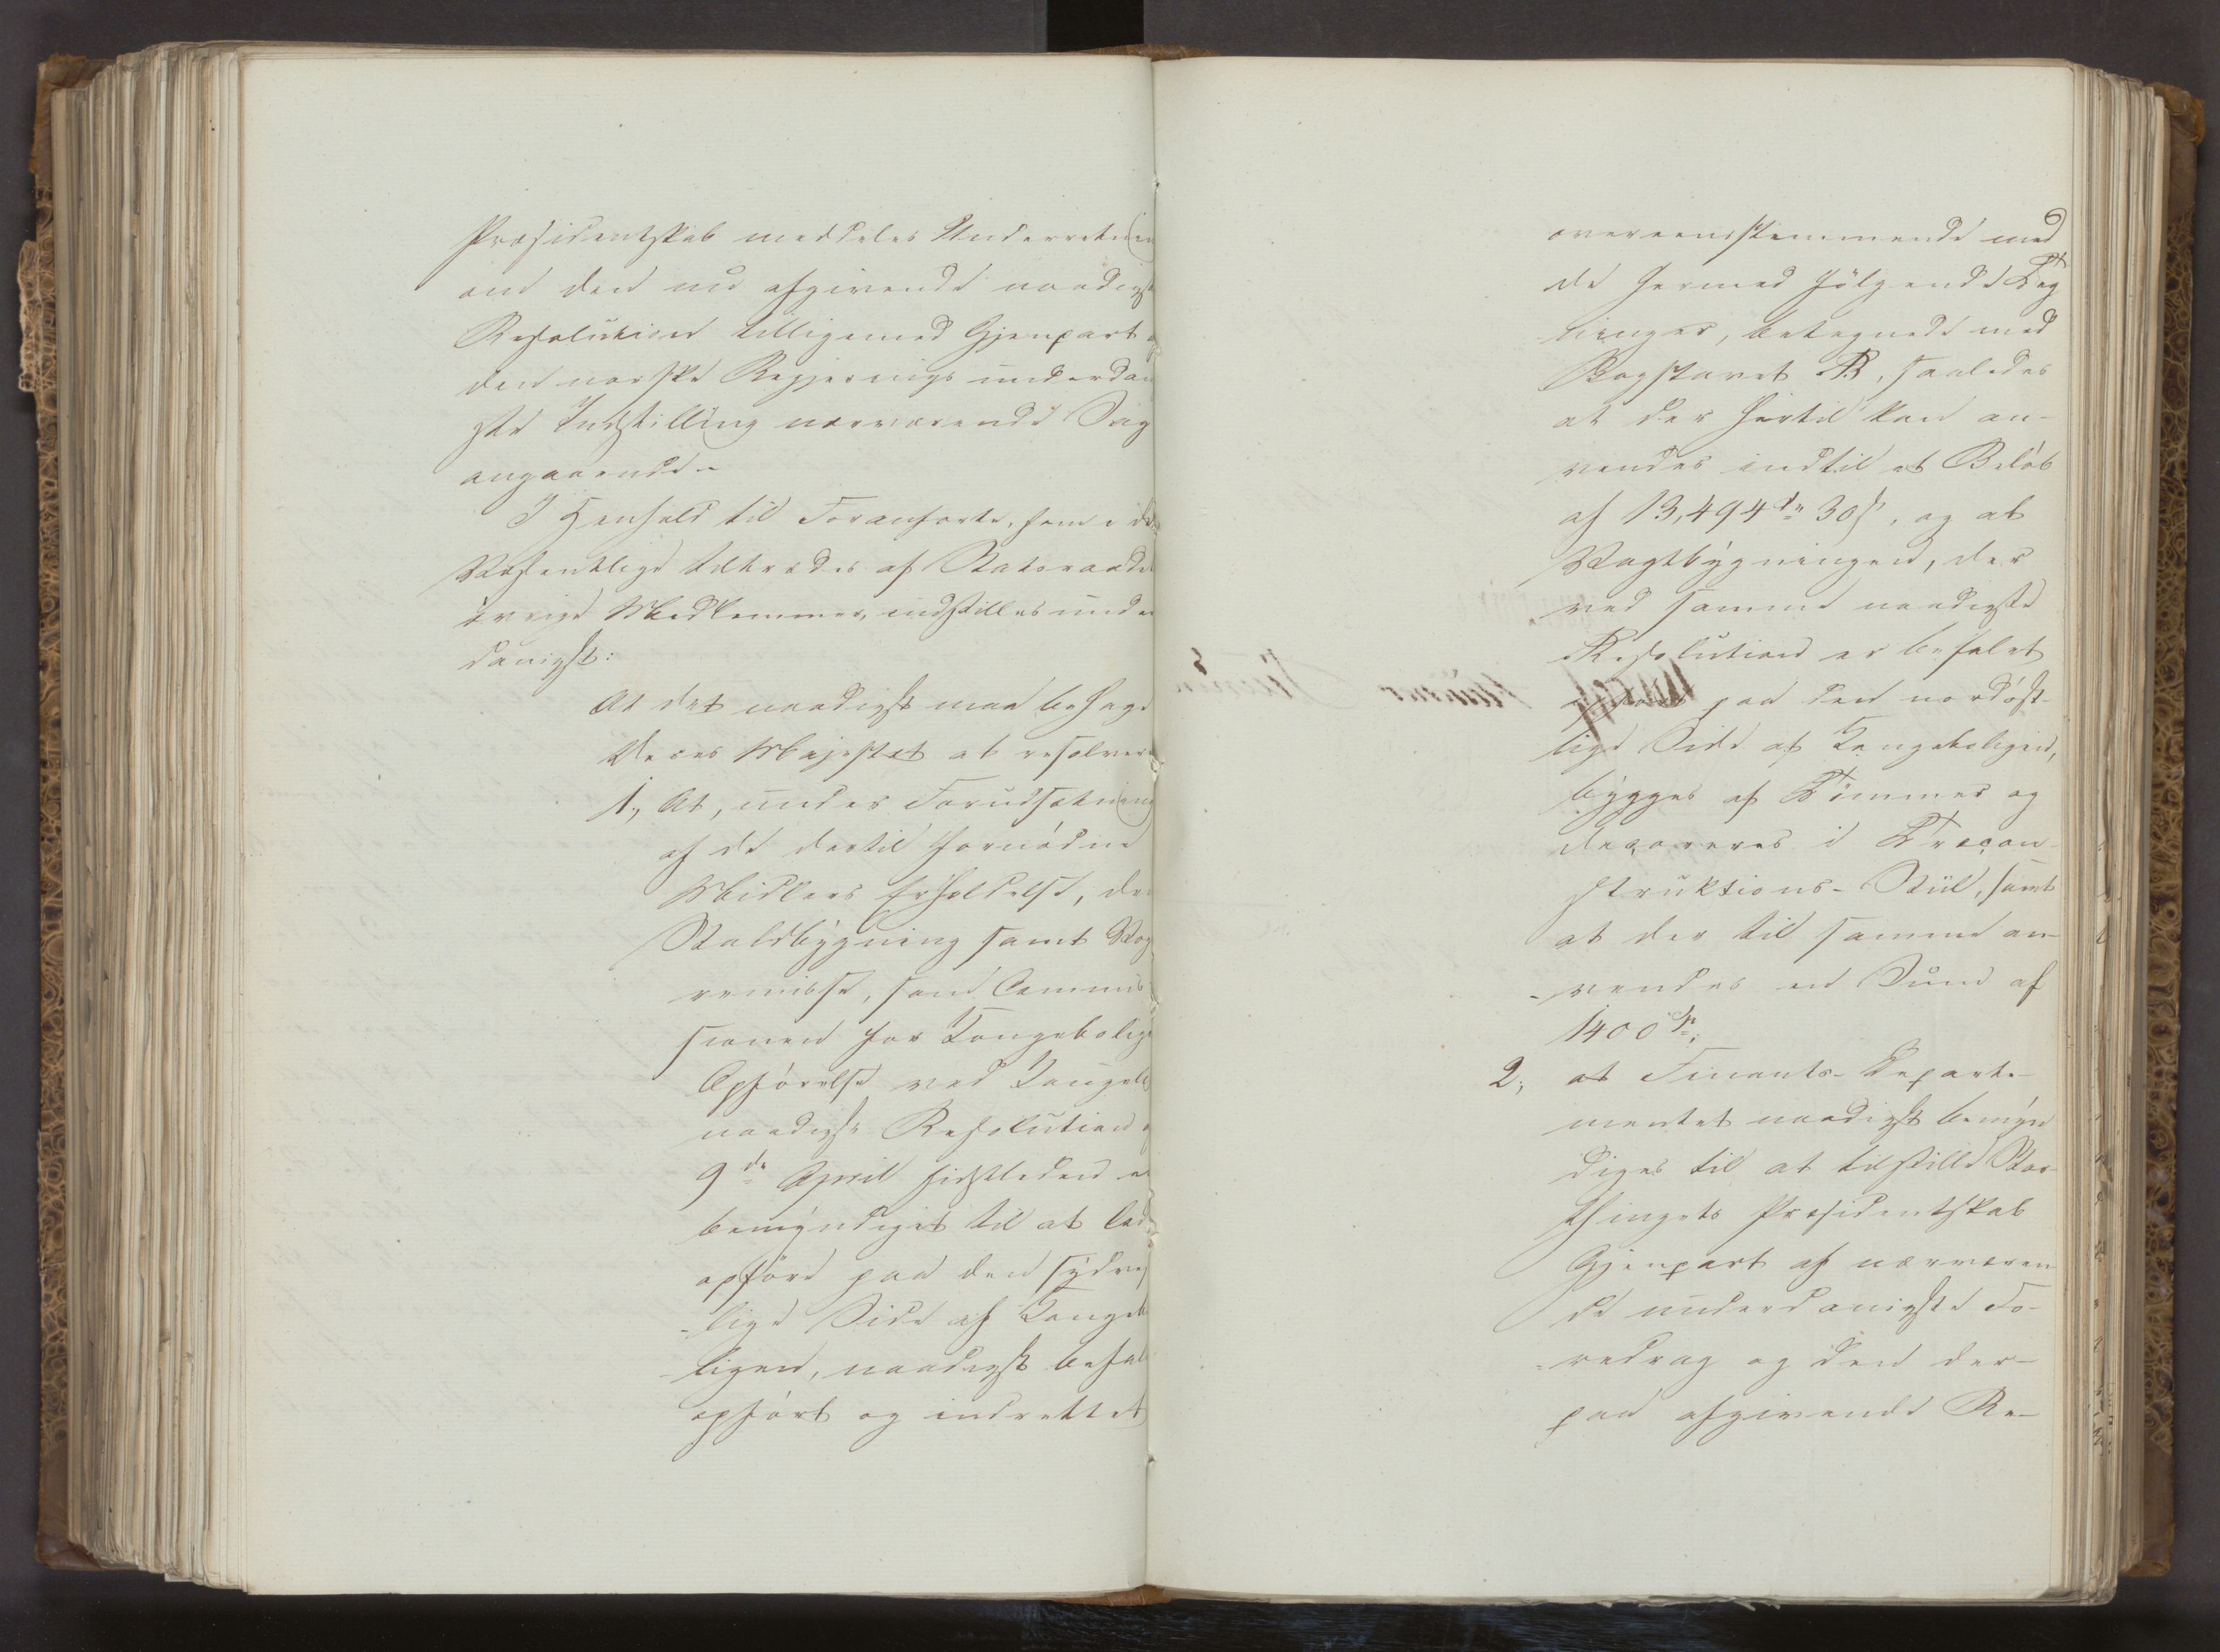 Præsidentskab meddeles Underretnin
om den nu afgivende naadigst
Resolution tilligemed Gjenpart
den norske Regjerings underdan
ste Indstilling nærværende Sag
angaaende.
I Henhold til Foranførte, som i det
Væsentlige tiltrædes af Statsraadet
øvrige Medlemmer, indstilles under
danigst:
At det naadigst maa behage
Deres Majestæt at resolvere
1., At, under Forudsætning
af de dertil fornødne
Midlers Erholdelse, den
Staldbygning samt Vog
remisse, som Commis
sionen for Kongebolige
Opførelse ved Kongeli
naadigste Resolution
9de April sidstleden er
bemyndiget til at lade
opføre paa den sydves
lige Side af Kongebo
ligen, naadigst befale
opført og indrettet
overeensstemmende med
de hermed følgende Teg
ninger, betegnede med
Bogstavet B, saaledes
at der hertil kan an-
vendes indtil et Beløb
af 13,494 dr 30 s, og at
Vagtbygningen, der
ved samme naadigste
Resolution er befalet
paa den nordøst-
lige Side af Kongeboligen,
bygges af Tømmer og
decoreres i Træcon
struktions-Stiil, samt
at der til samme an-
vendes en Sum af
1400 Sp;
2., at Finants-Departe-
mentet naadigst bemyn
diges til at tilstille Stor
thingets Præsidentskab
Gjenpart af nærværen
de underdanigste Fo-
redrag og den der-
paa afgivende Re-